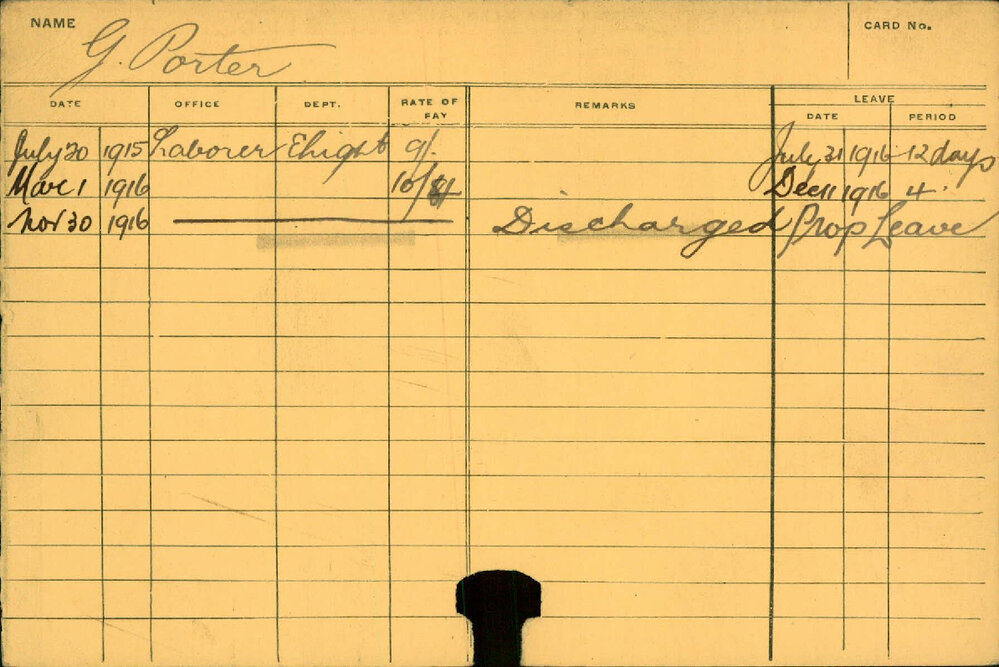 NAME
G. Porter
CARD No.
DATE OFFICE DEPT. RATE OF PAY REMARKS LEAVE
DATE PERIOD
July 20 1915 Laborer Elright 9/. July 31 1916 12 days
Mar 1 1916 10/ Dec 11 1916 4 "
Nov 30 1916 Discharged Prop Leave